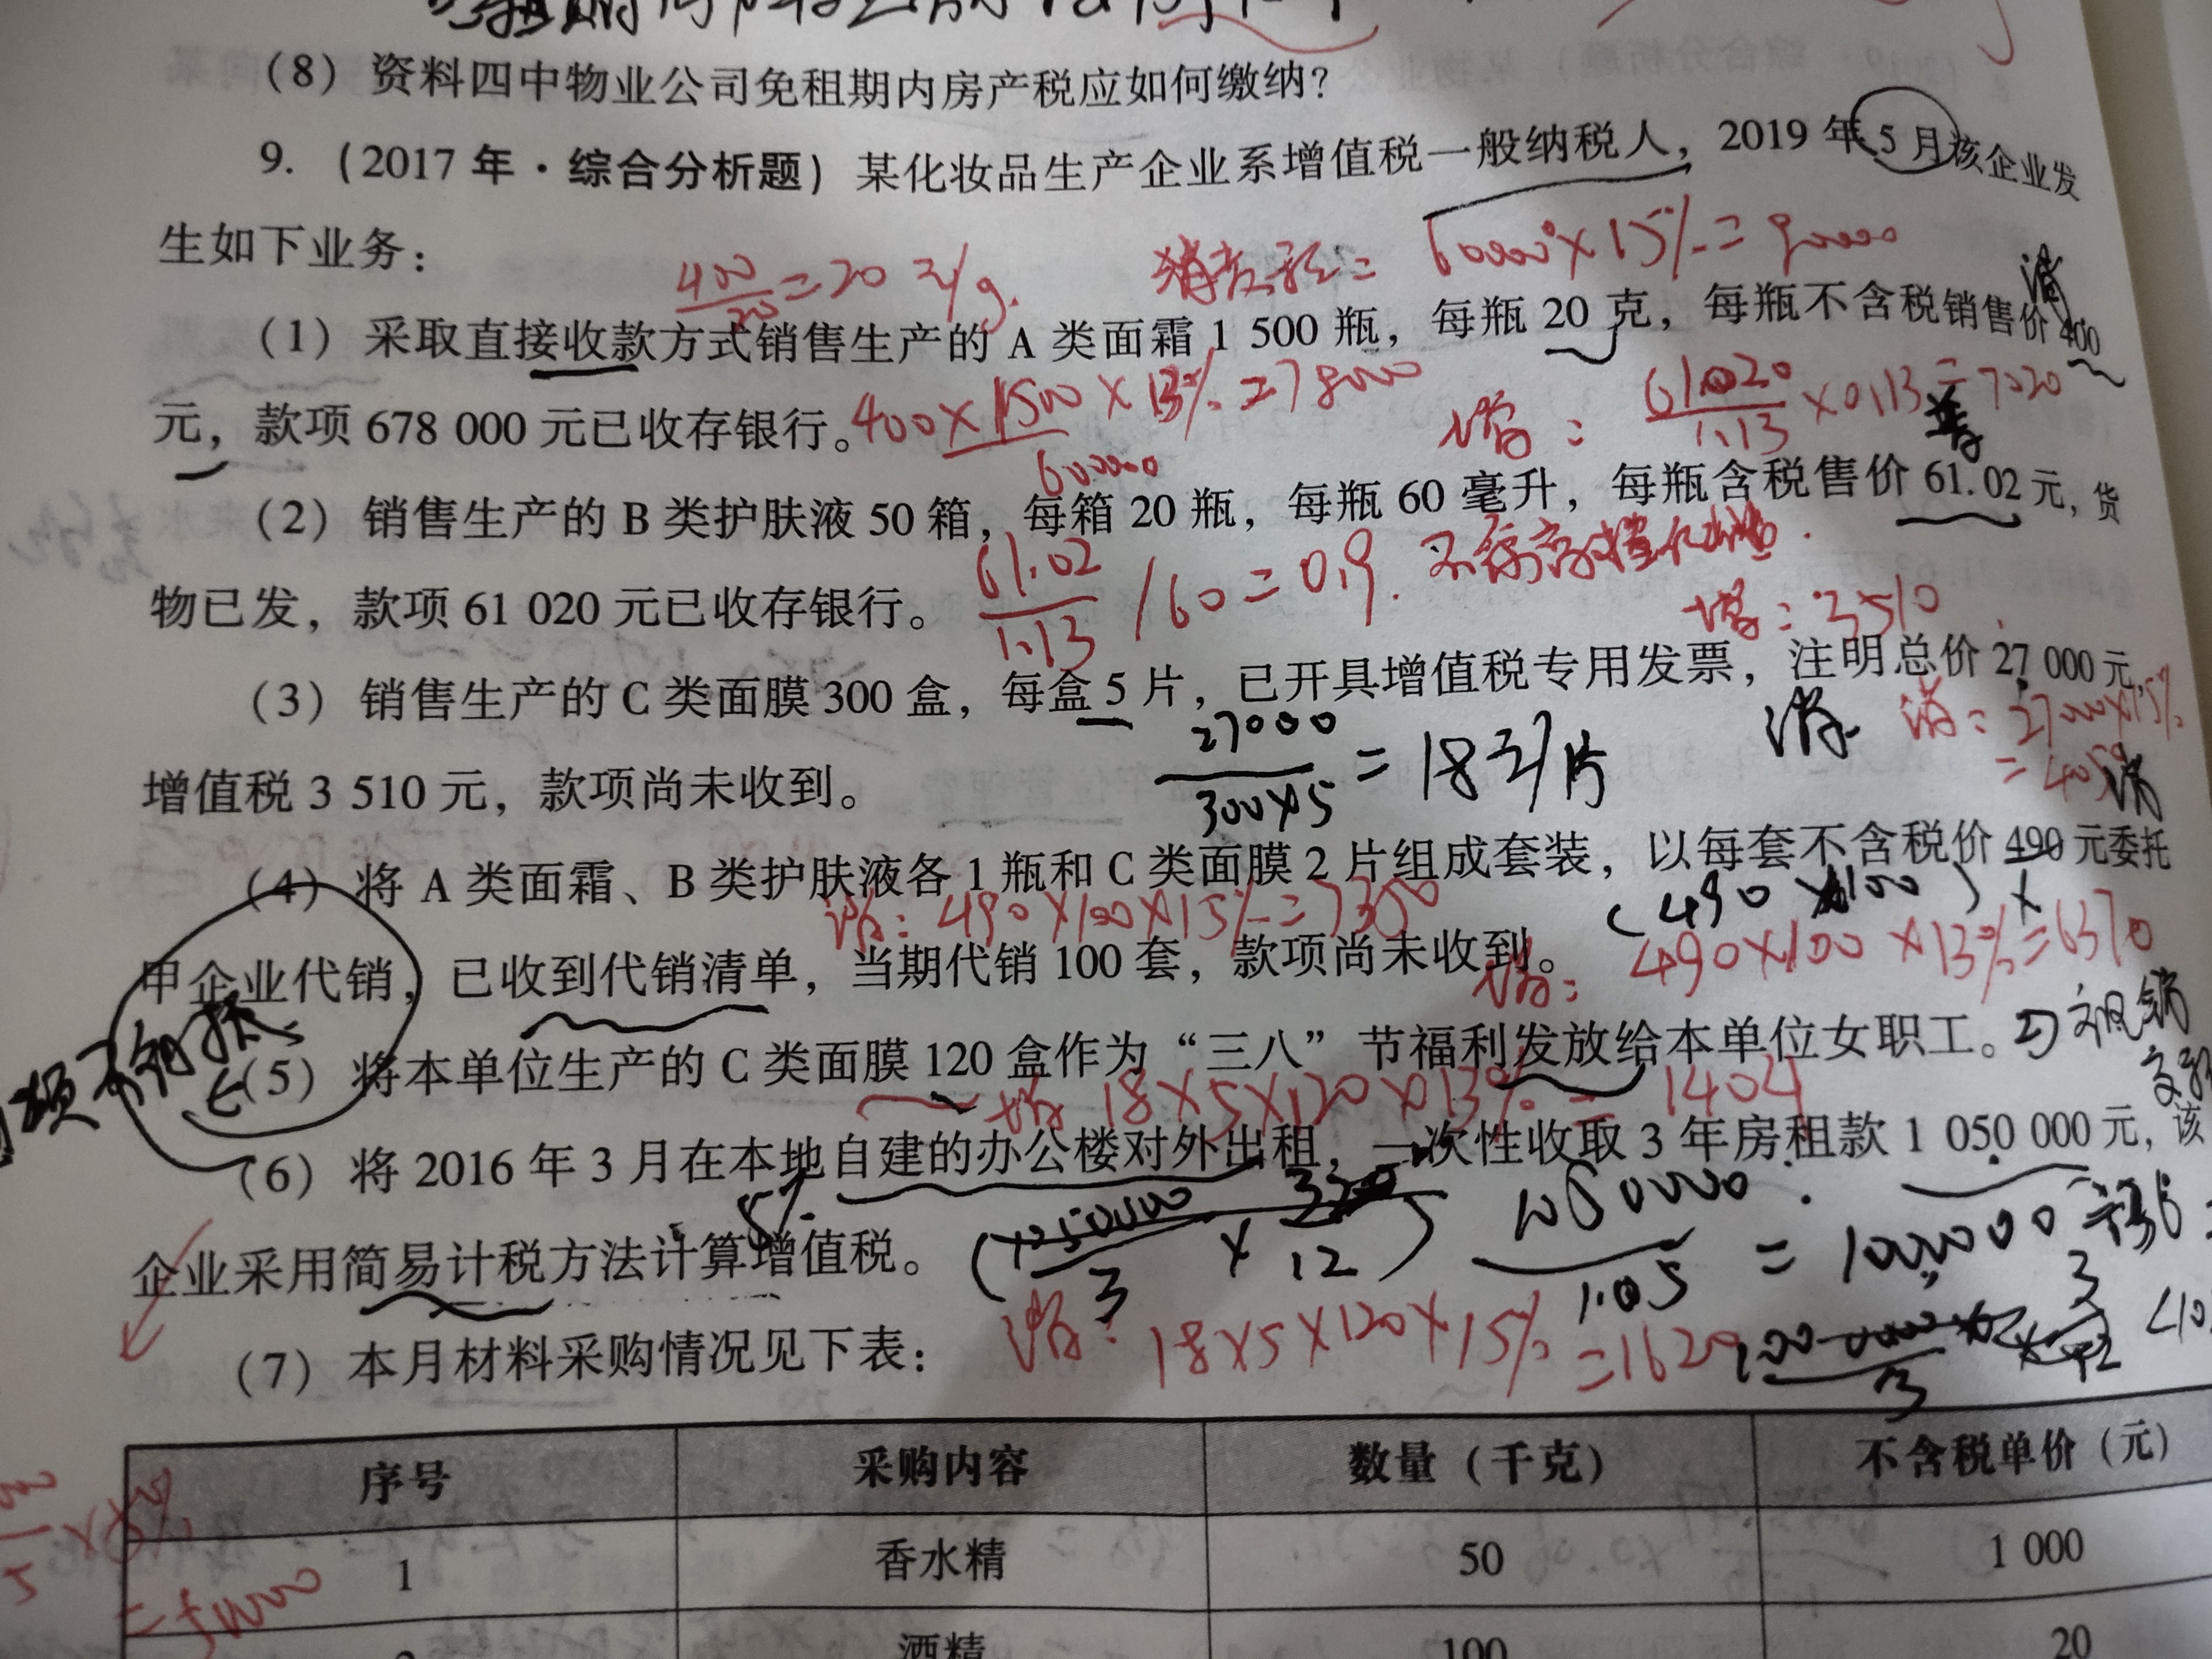 (8) 资料四中物业公司免租期内房产税应如何缴纳?
9. (2017 年·综合分析题) 某化妆品生产企业系增值税一般纳税人, 2019 年 5 月该企业发
生如下业务:
400/20=20 元/g. 消费税= 600000×15%=90000
(1) 采取直接收款方式销售生产的 A 类面霜 1 500 瓶, 每瓶 20 克, 每瓶不含税销售价 400
元, 款项 678 000 元已收存银行。
400×1500×13%=78000
600000
增: 61020/1.13×0.13=7020
(2) 销售生产的 B 类护肤液 50 箱, 每箱 20 瓶, 每瓶 60 毫升, 每瓶含税售价 61.02 元, 货
物已发, 款项 61 020 元已收存银行。
61.02/1.13/60=0.9.
增: 3510
(3) 销售生产的 C 类面膜 300 盒, 每盒 5 片, 已开具增值税专用发票, 注明总价 27 000 元,
消: 27000×15%
=4050
增值税 3 510 元, 款项尚未收到。
27000/300×5=18元/片
消
(4) 将 A 类面霜、B 类护肤液各 1 瓶和 C 类面膜 2 片组成套装, 以每套不含税价 490 元委托
消: 490×100×15%=7350
(490×100)×
甲企业代销, 已收到代销清单, 当期代销 100 套, 款项尚未收到。
增: 490×100×13%=6370
(5) 将本单位生产的 C 类面膜 120 盒作为“三八”节福利发放给本单位女职工。
增 18×5×120×13%=1404
(6) 将 2016 年 3 月在本地自建的办公楼对外出租, 一次性收取 3 年房租款 1 050 000 元, 该
企业采用简易计税方法计算增值税。
5%
1050000/1.05=1000000
消: 18×5×120×15%=1620
(7) 本月材料采购情况见下表:
序号 采购内容 数量 (千克) 不含税单价 (元)
1 香水精 50 1 000
酒精 100 20